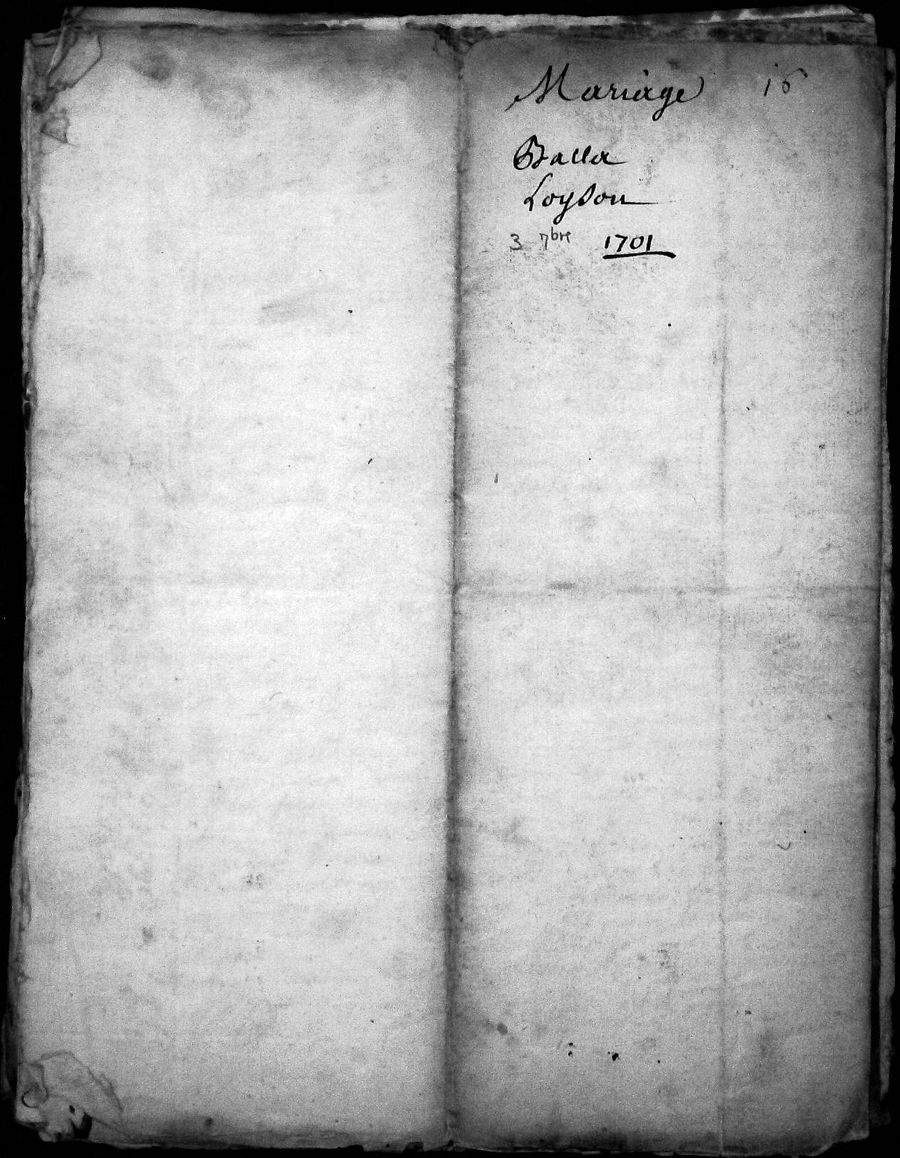 Mariage 16
Balla
Loyson
3 7bre 1701